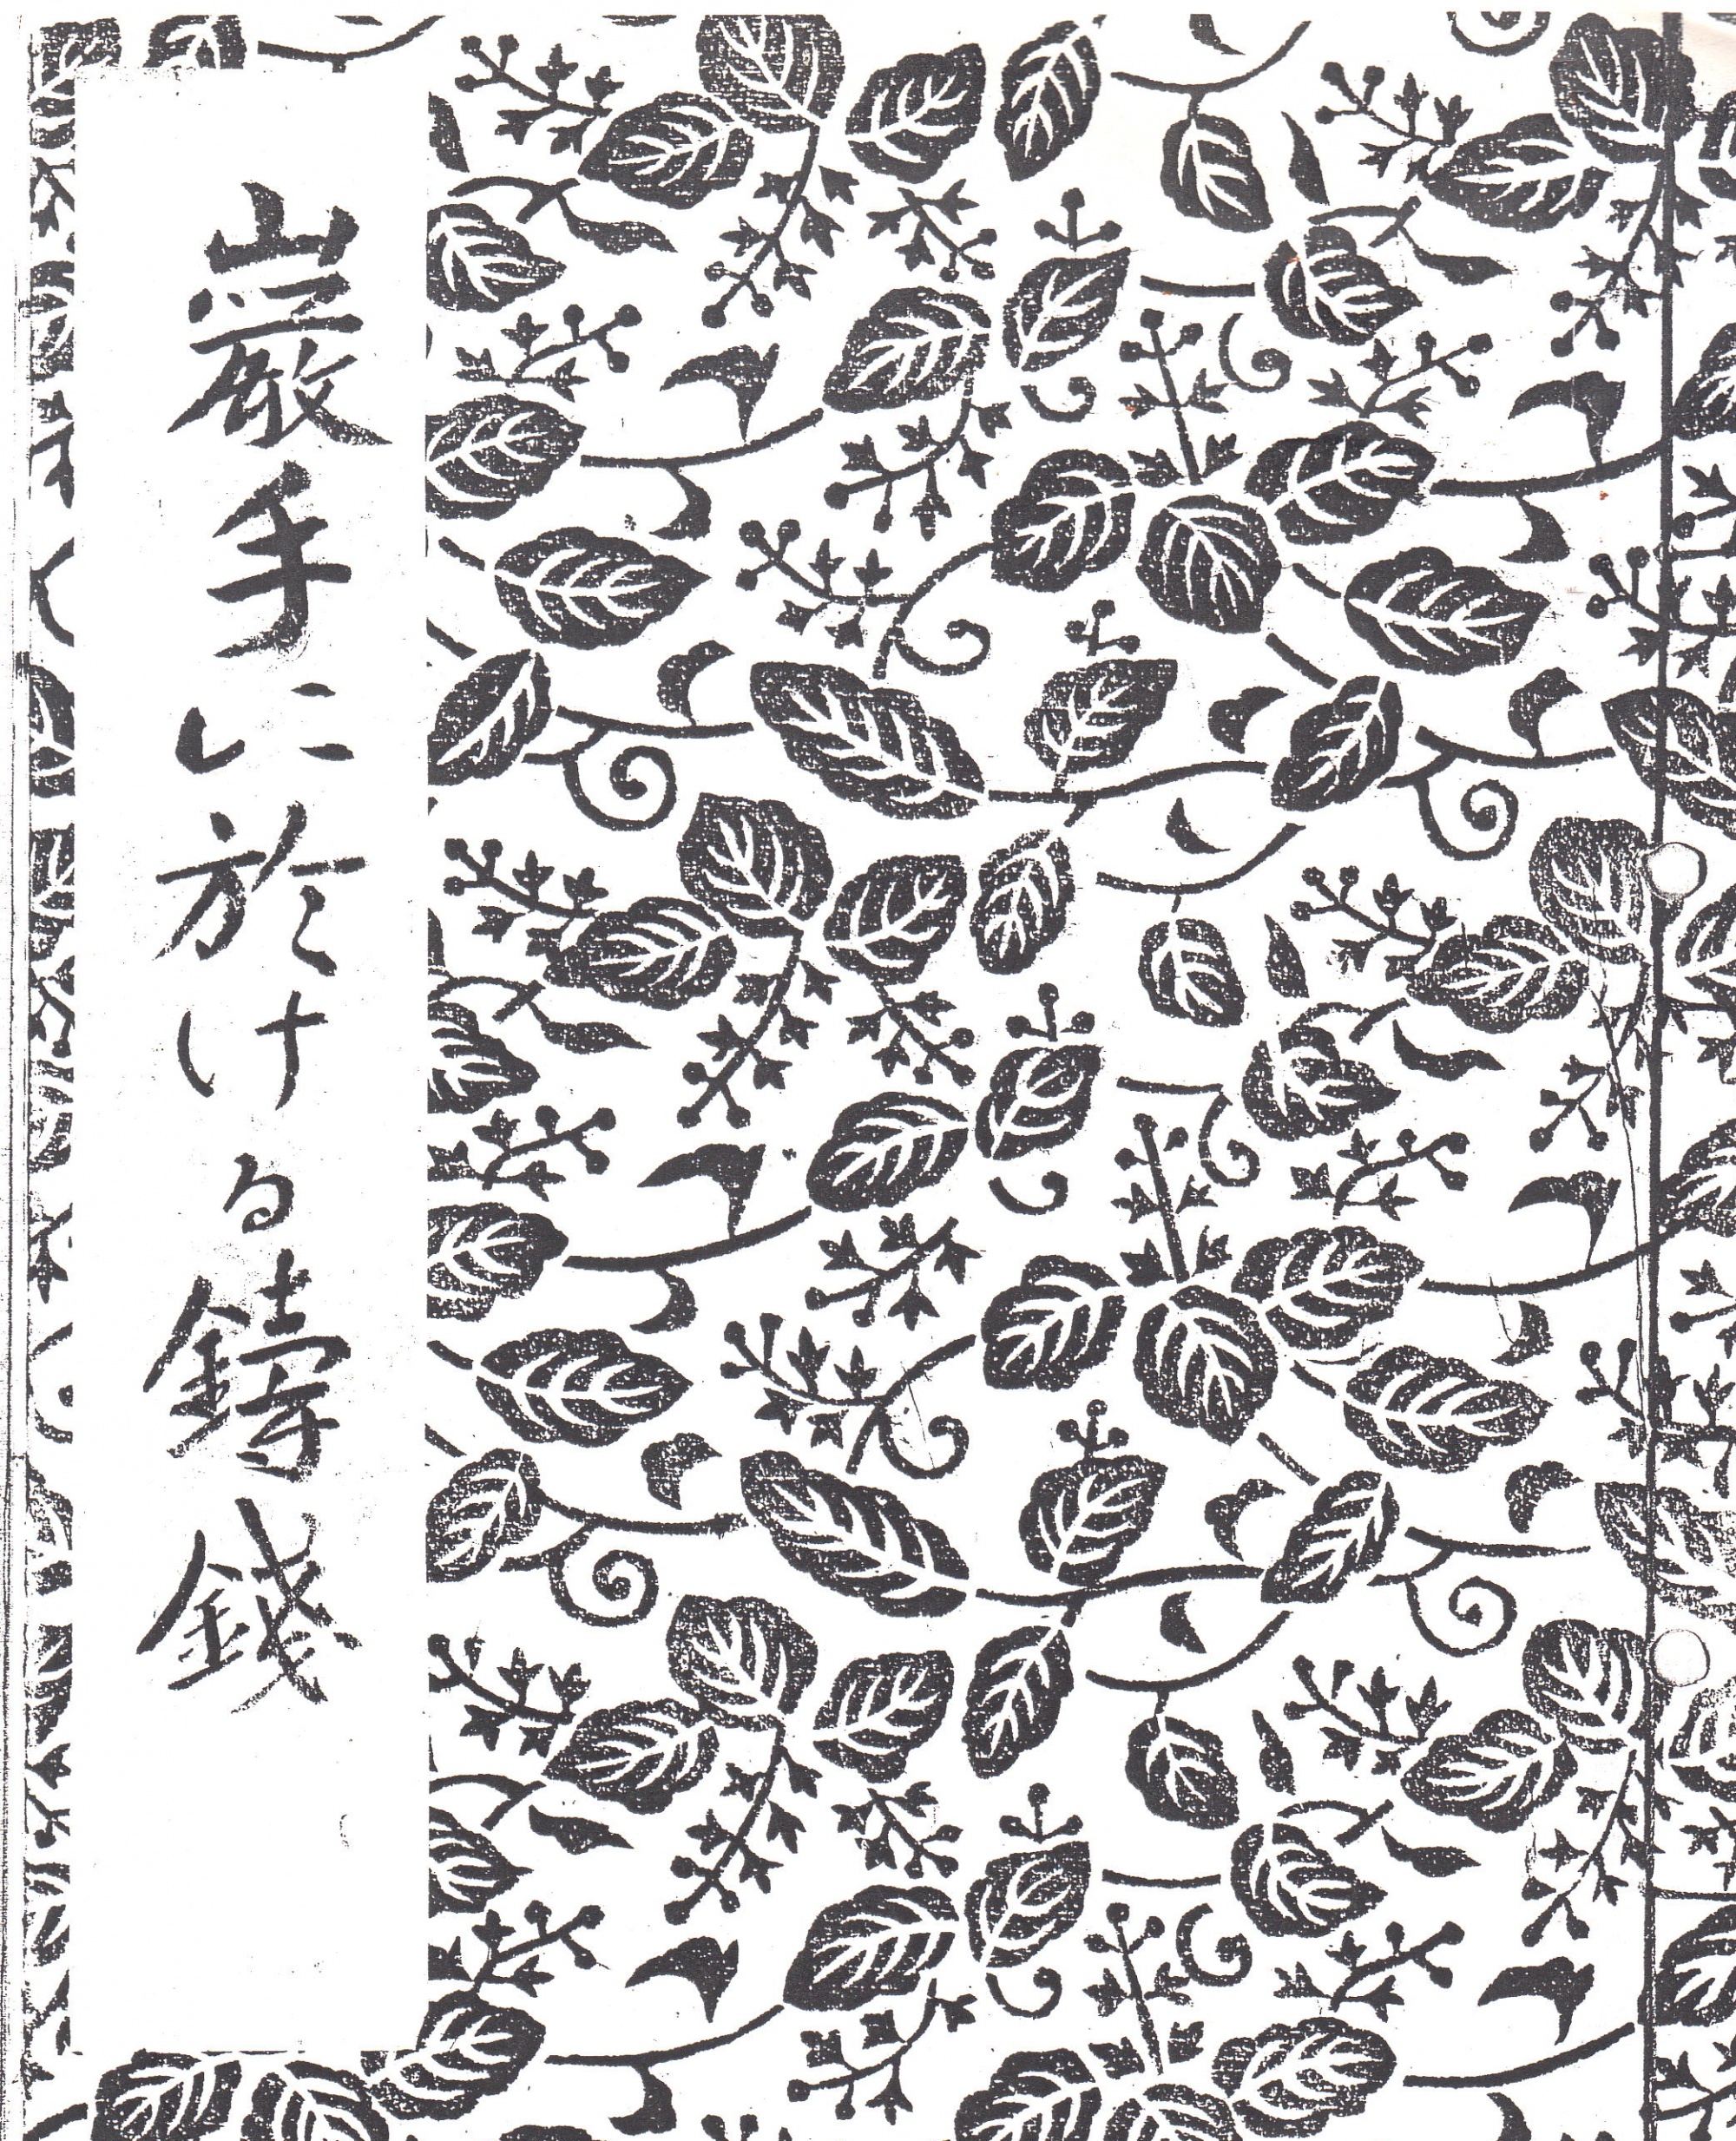 巖手に於ける鋳錢